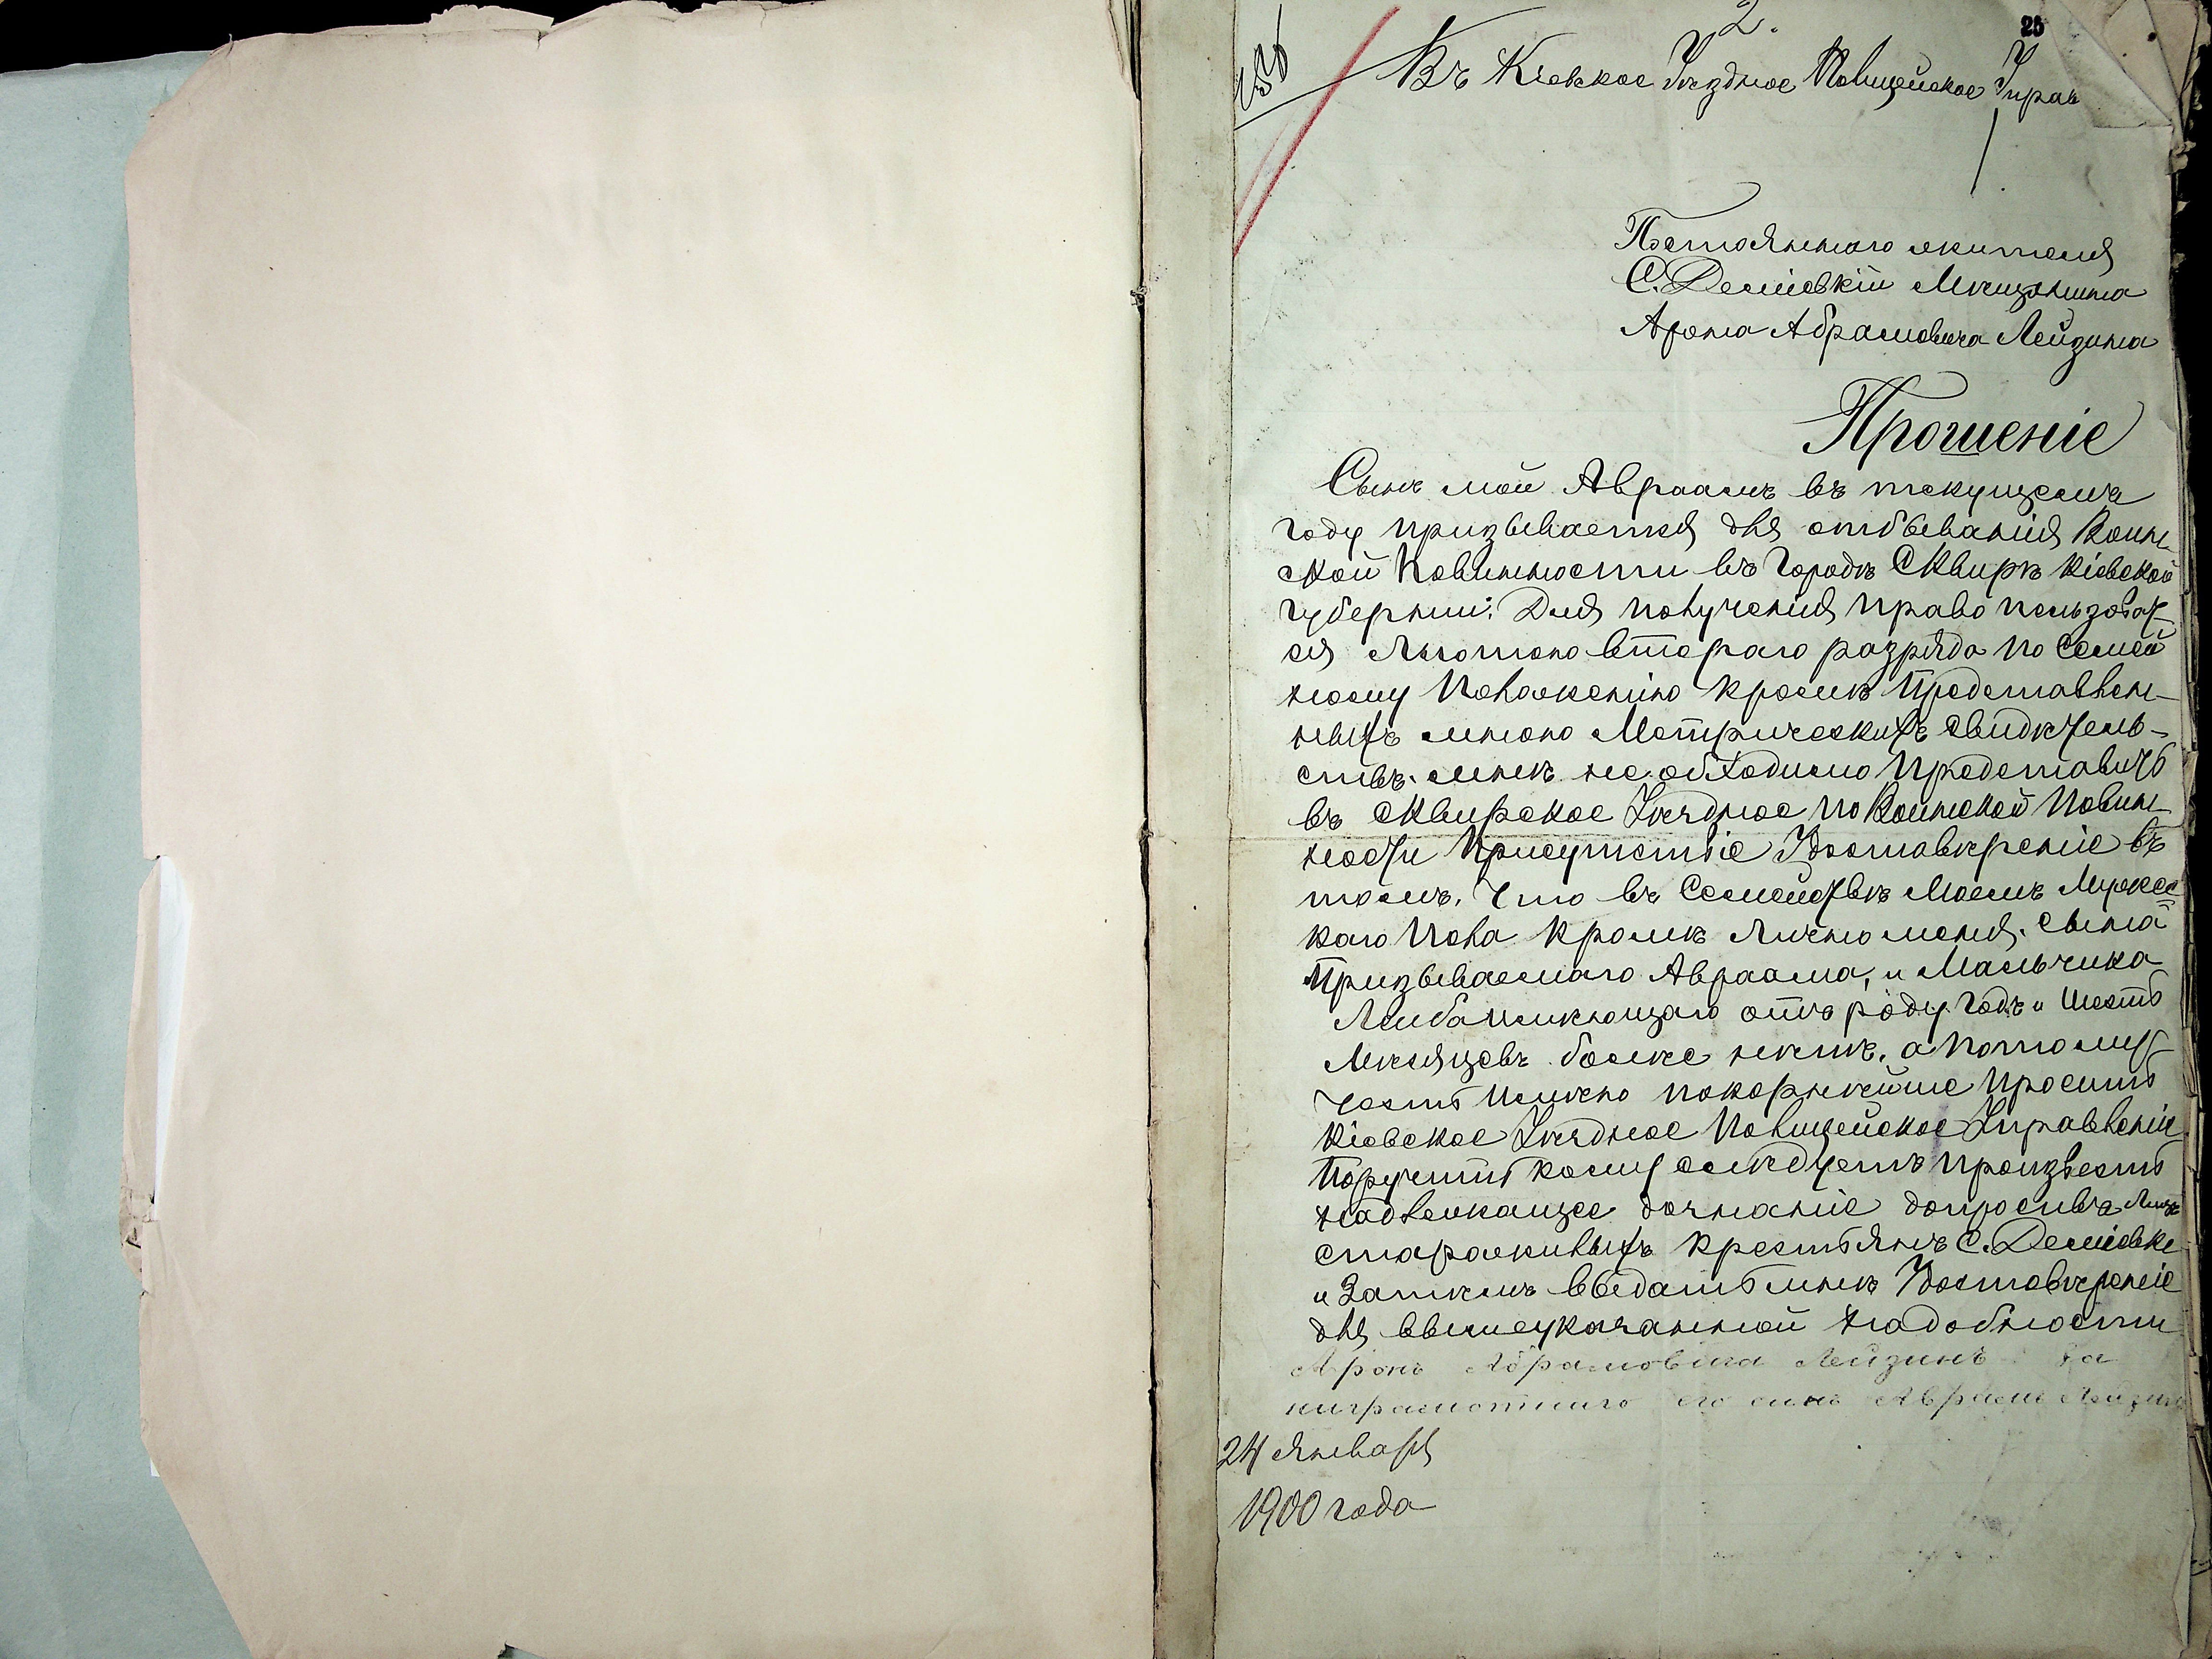 2.
25
Въ Кіевское Уѣздное Полицейское Управ
Постояннаго жителя
С. Деміевкій Мѣщанина
Арона Абрамовича Лейзина
Прошеніе
Сынъ мой Авраамъ въ текущемъ
году призывается для отбыванія Воин-
ской Повинности въ Городѣ Сквирѣ Кіевской
губерніи. Для полученія право пользоват-
ся льготою втораго разряда по Семей
ному Положенію кромѣ Представлен-
ныхъ мною Метрическихъ свидѣтель-
ствъ. мнѣ необходимо Представить
въ Сквирское Уѣздное по Воинской Повин-
ности Присутствіе Удостовѣреніе въ
томъ. Что въ Семействѣ Моемъ Мужес
каго Пола Кромѣ Лично меня. сына
Призываемаго Авраама, и Мальчика
Лейба имѣющаго отъ роду годъ и шесть
Мѣсяцевъ болѣе нѣтъ. а потому
Честь Имѣю покорнѣйше Просить
Кіевское Уѣздное Полицейское Управленіе
Поручить кому слѣдуетъ произвесть
надлежащее дознаніе допросивъ
старожилыхъ крестьянъ С. Деміевки
и Затѣмъ выдать мнѣ Удостовѣреніе
для вышеуказанной надобности
Аронъ Абрамовича Лейзинъ за
неграмотнаго его сынъ Авраам Лейзин
24 Января
1900 года